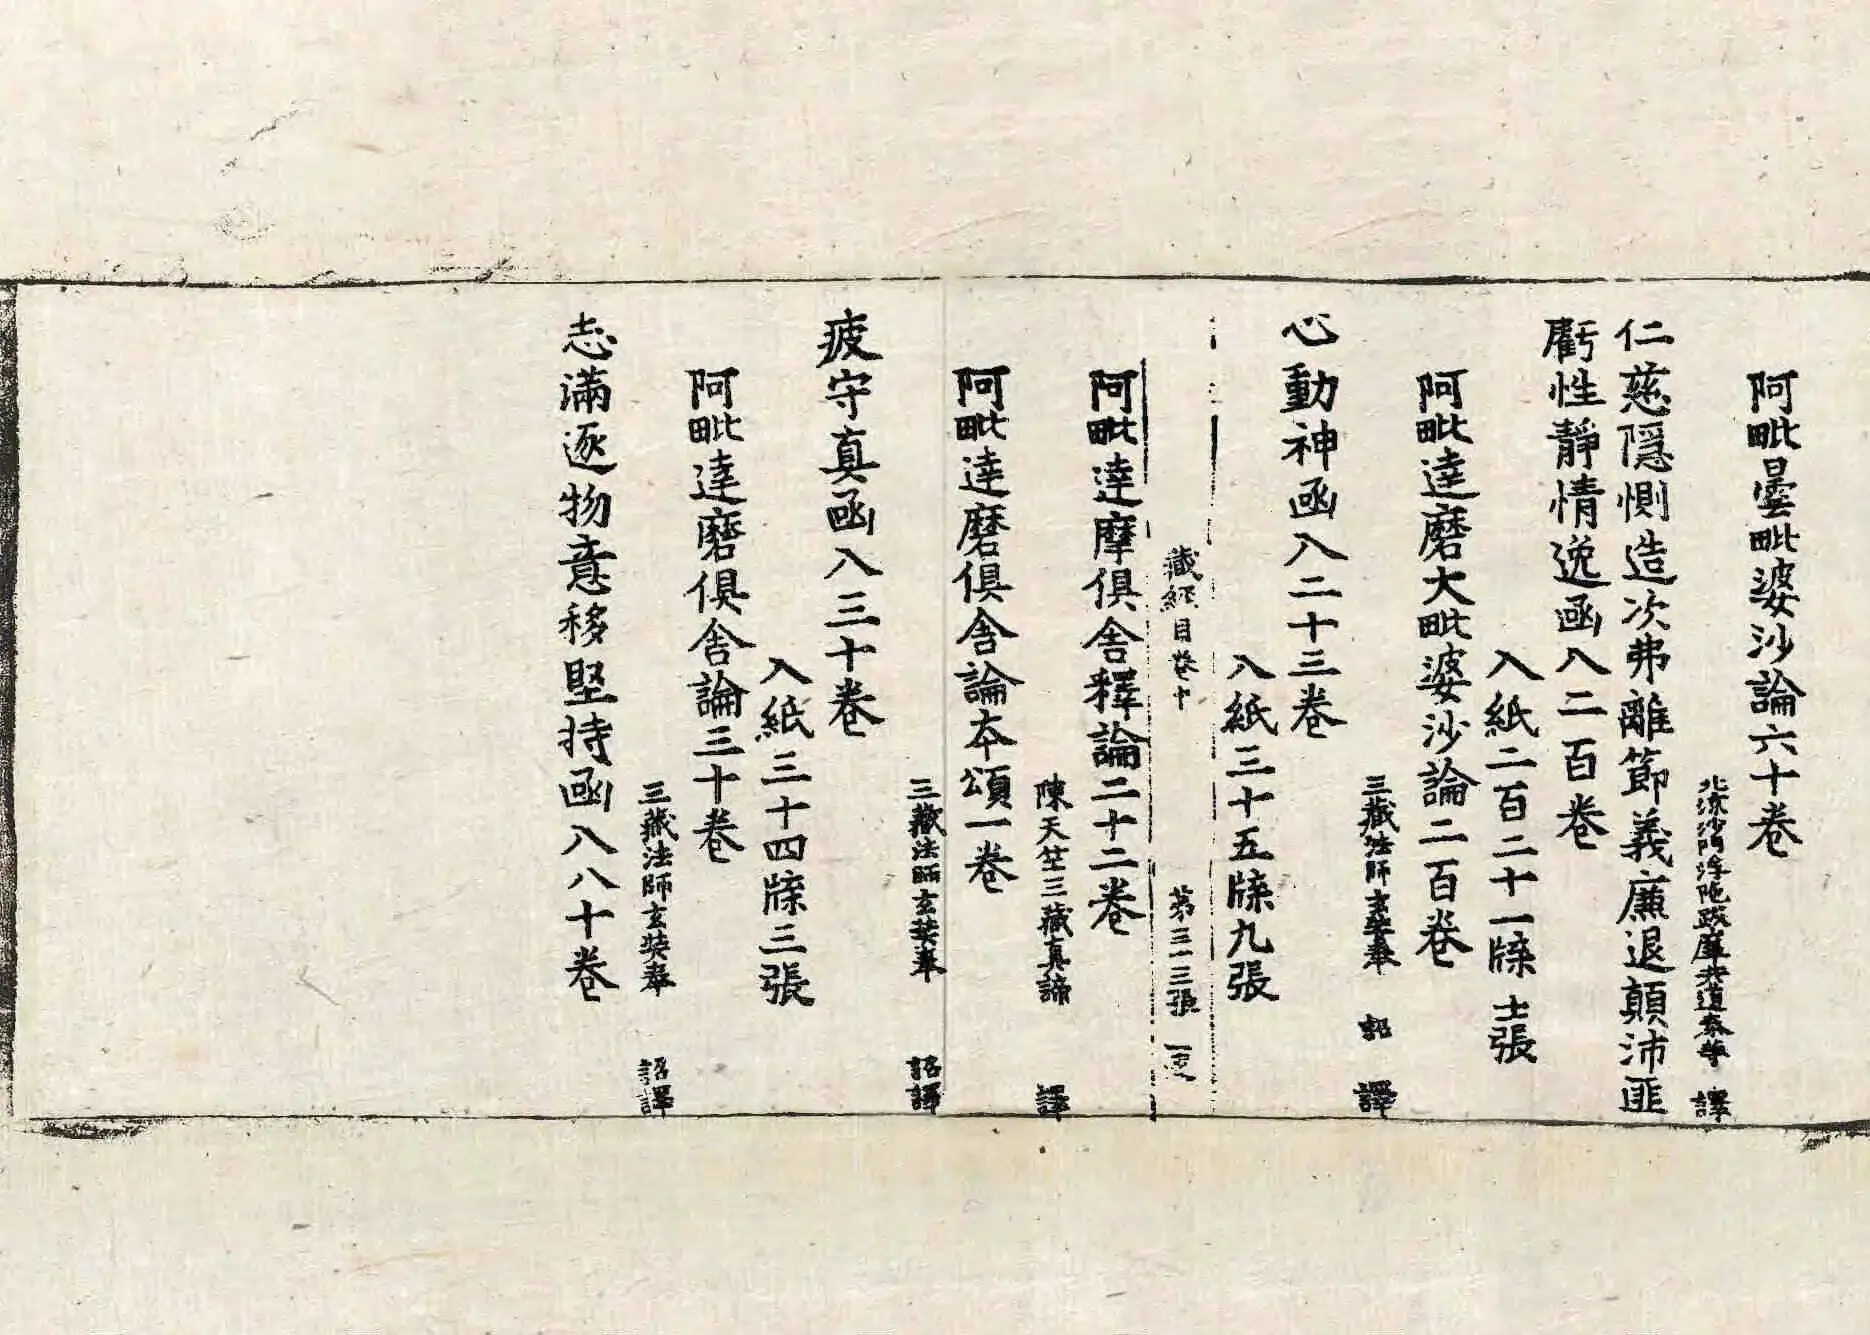 阿毗曇毗婆沙論六十卷
北涼沙門浮陁跋摩共道泰等 譯
仁慈隱惻造次弗離節義廉退顛沛匪
虧性靜情逸函入二百卷
入紙二百二十一牒 士張
阿毗達磨大毗婆沙論二百卷
三藏法師玄奘奉 詔 譯
心動神函入二十三卷
入紙三十五牒九張
藏經目卷十 第三十三張
阿毗達摩俱舍釋論二十二卷
陳天竺三藏真諦 譯
阿毗達磨俱舍論本頌一卷
三藏法師玄奘奉 詔譯
疲守真函入三十卷
入紙三十四牒三張
阿毗達磨俱舍論三十卷
三藏法師玄奘奉 詔譯
志滿逐物意移堅持函入八十卷